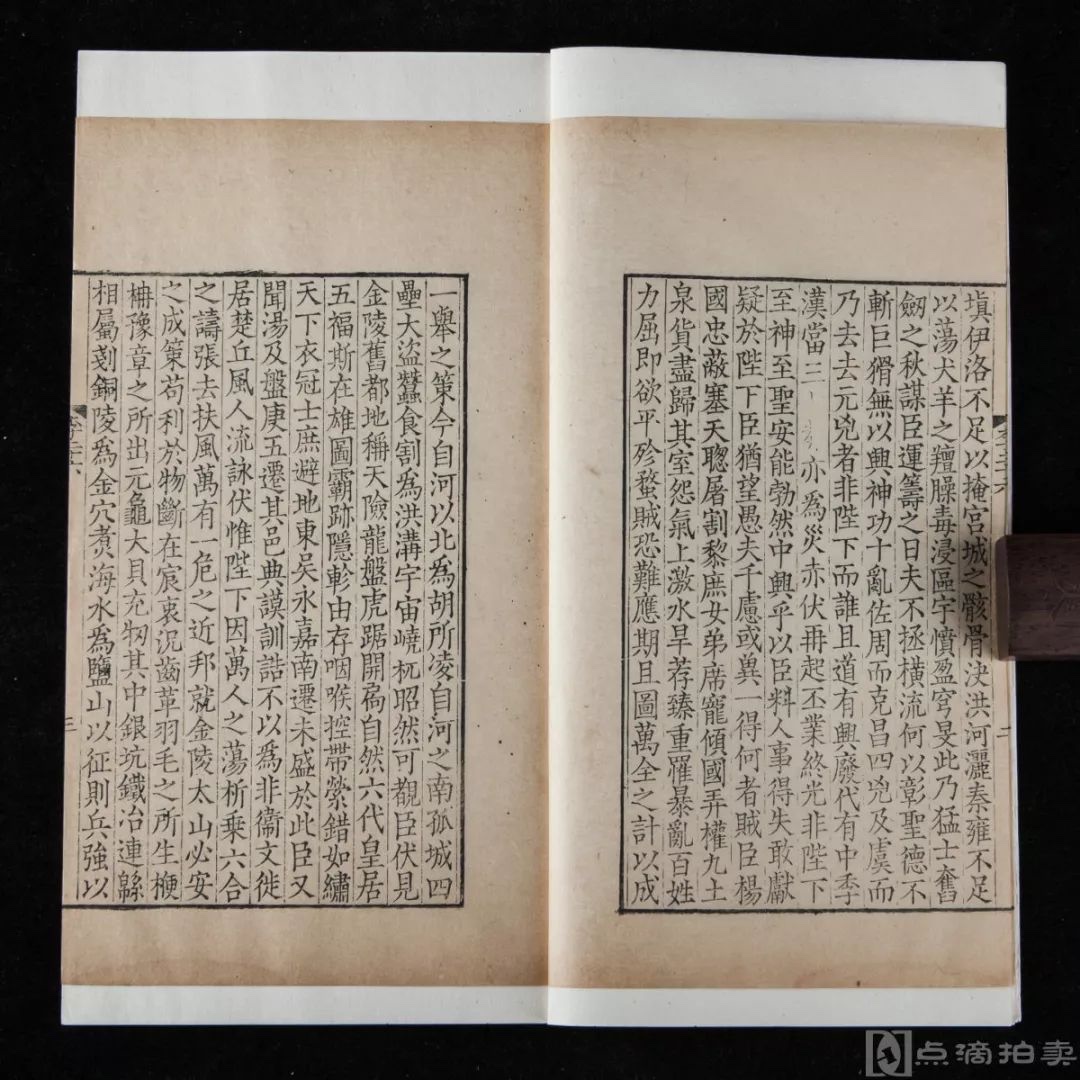 塡伊洛不足以掩宫城之骸骨決洪河灑秦雍不足
以蕩犬羊之羶臊毒浸區宇憤盈穹旻此乃猛士奮
劒之秋謀臣運籌之日夫不拯横流何以彰聖德不
斬巨猾無以興神功十亂佐周而克昌四凶及虞而
乃去去元兇者非陛下而誰且道有興廢代有中季
漢當三亦爲災赤伏冉起丕業終光非陛下
至神至聖安能勃然中興乎以臣料人事得失敢獻
疑於陛下臣猶望愚夫千慮或兾一得何者賊臣楊
國忠蔽塞天聰屠割黎庶女弟席寵傾國弄權九土
泉貨盡歸其室怨氣上激水旱荐臻重罹暴亂百姓
力屈即欲平殄蝥賊恐難應期且圖萬全之計以成
二
一舉之策今自河以北爲胡所凌自河之南孤城四
壘大盜蠶食割爲洪溝宇宙嶢杌昭然可覩臣伏見
金陵舊都地稱天險龍盤虎踞開扃自然六代皇居
五福斯在雄圖霸跡隱軫由存咽喉控帶縈錯如繡
天下衣冠士庶避地東吳永嘉南遷未盛於此臣又
聞湯及盤庚五遷其邑典謨訓誥不以爲非衞文徙
居楚丘風人流詠伏惟陛下因萬人之蕩析乗六合
之譸張去扶風萬有一危之近邦就金陵太山必安
之成策苟利於物斷在宸衷況齒革羽毛之所生楩
柟豫章之所出元龜大貝充牣其中銀坑鐵冶連緜
相屬剗銅陵爲金穴煑海水爲鹽山以征則兵強以
三
点滴拍卖